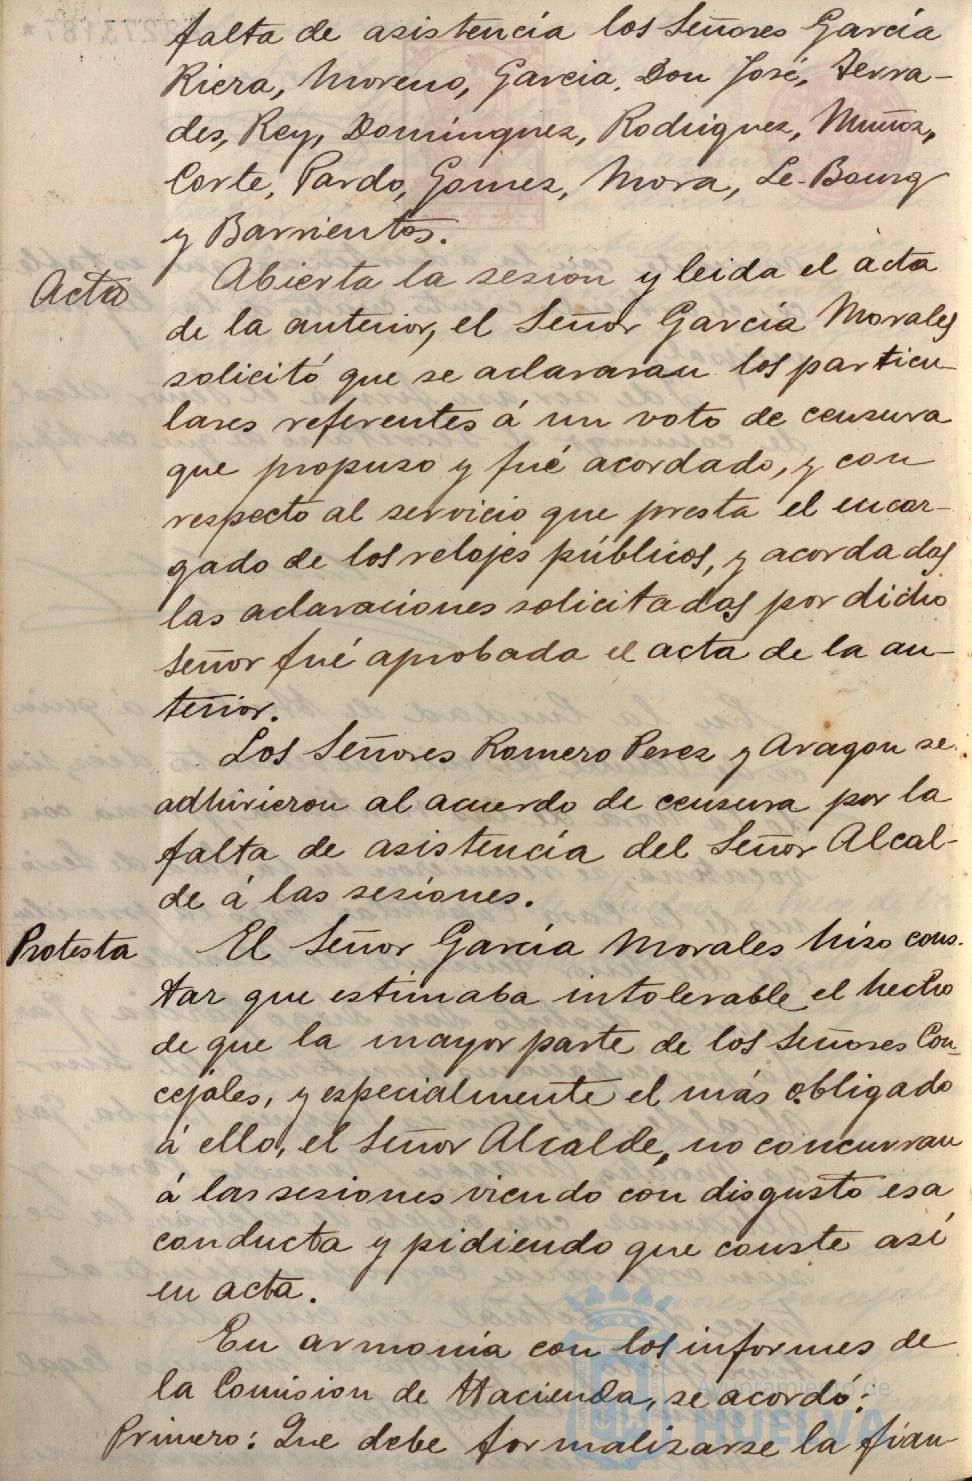 falta de asistencia los Señores García
Riera, Moreno, Garcia, Don José, Terra-
des, Rey, Domínguez, Rodriguez, Muñoz,
Corte, Pardo, Gomez, Mora, Le-Bourg
y Barrientos.
Acta
Abierta la sesion y leida el acta
de la anterior, el Señor García Morales
solicitó que se aclararan los particu-
lares referentes á un voto de censura
que propuso y fué acordado, y con
respecto al servicio que presta el encar-
gado de los relojes públicos, y acordadas
las aclaraciones solicitadas por dicho
Señor fué aprobada el acta de la an-
terior.
Los Señores Romero Perez y Aragon se
adhirieron al acuerdo de censura por la
falta de asistencia del Señor Alcal-
de á las sesiones.
Protesta
El Señor García Morales hizo cons-
tar que estimaba intolerable el hecho
de que la mayor parte de los Señores Con-
cejales, y especialmente el más obligado
á ello, el Señor Alcalde, no concurran
á las sesiones viendo con disgusto esa
conducta y pidiendo que conste así
en acta.
En armonía con los informes de
la Comision de Hacienda, se acordó:
Primero: Que debe formalizarse la fian-
Ayuntamiento de
HUELVA